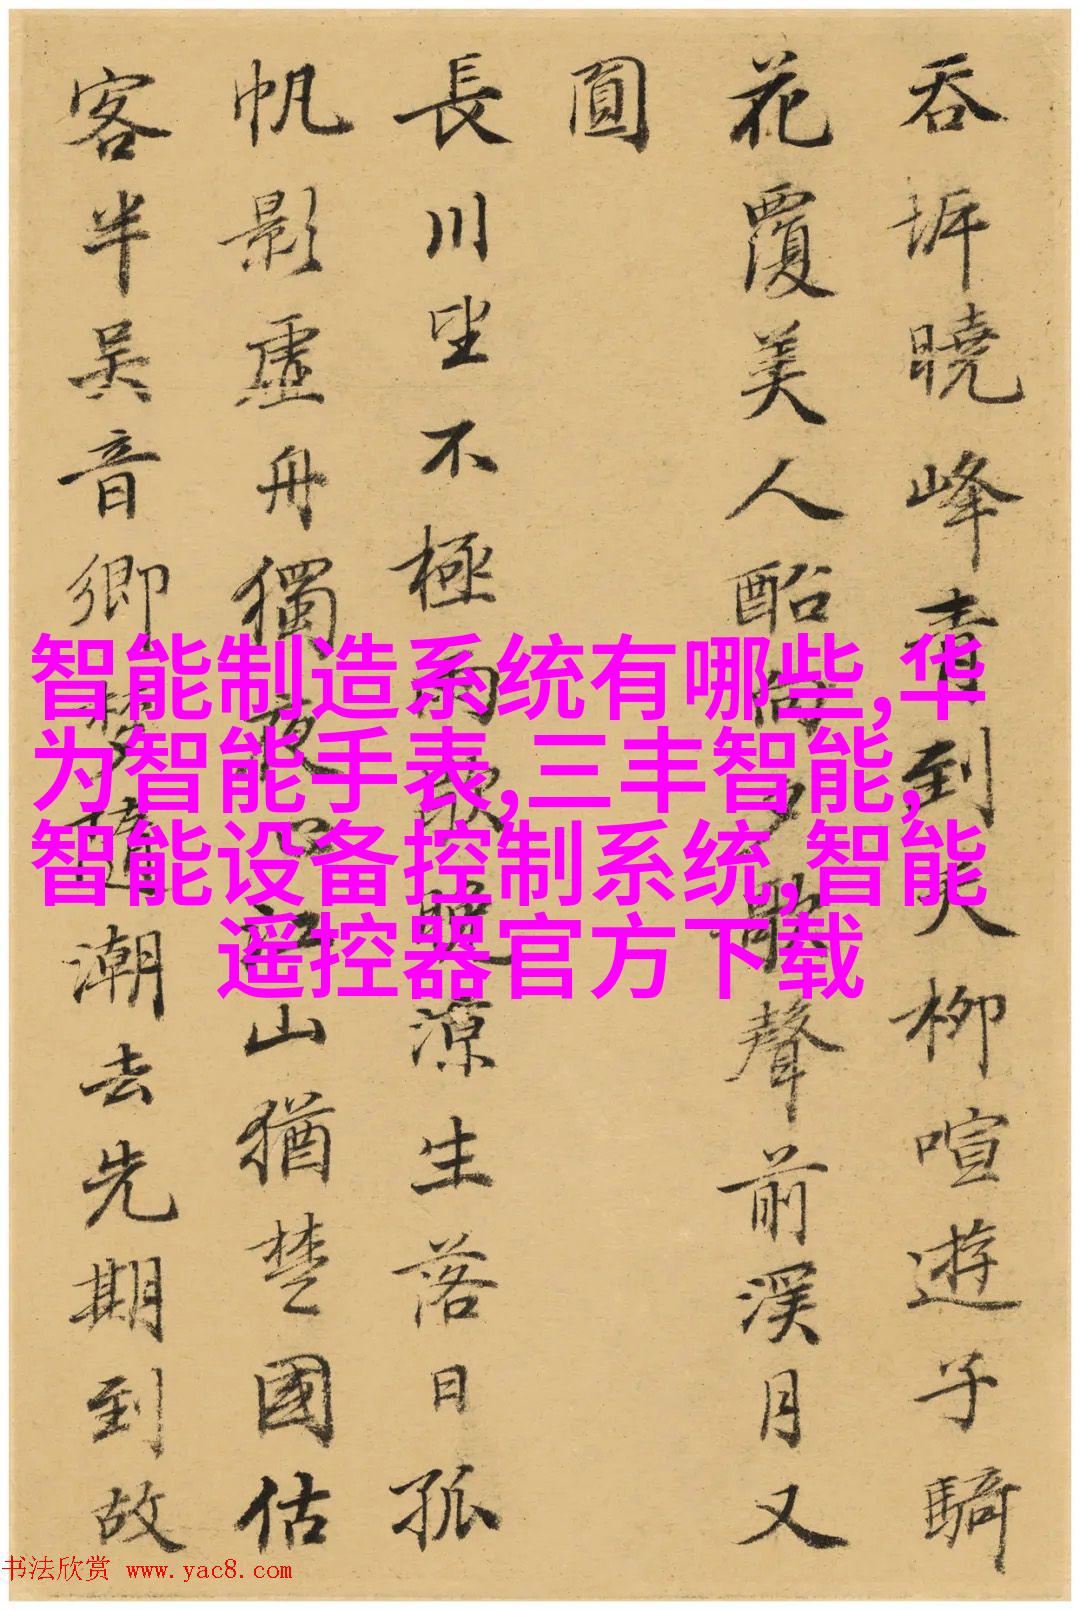 吞坼曉峰青到天柳喧遊子騎
花覆美人向夕歌聲前溪月又
圓
長川坐不極雨歇晚涼生落日孤
帆影虛舟獨夜心江山猶楚國估
客半吳音鄉夢隨潮去先期到故
智能制造系统有哪些,华
为智能手表,三丰智能,
智能设备控制系统,智能
遥控器官方下载
书法欣赏 www.yac8.com